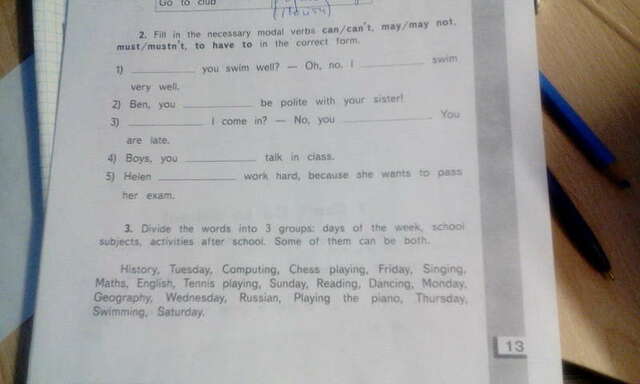 Go to club
(thousy)
2. Fill in the necessary modal verbs can/can't, may/may not,
must/mustn't, to have to in the correct form.
1) __________ you swim well? — Oh, no. I __________ swim
very well.
2) Ben, you __________ be polite with your sister!
3) __________ I come in? — No, you __________. You
are late.
4) Boys, you __________ talk in class.
5) Helen __________ work hard, because she wants to pass
her exam.
3. Divide the words into 3 groups: days of the week, school
subjects, activities after school. Some of them can be both.
History, Tuesday, Computing, Chess playing, Friday, Singing,
Maths, English, Tennis playing, Sunday, Reading, Dancing, Monday,
Geography, Wednesday, Russian, Playing the piano, Thursday,
Swimming, Saturday.
13